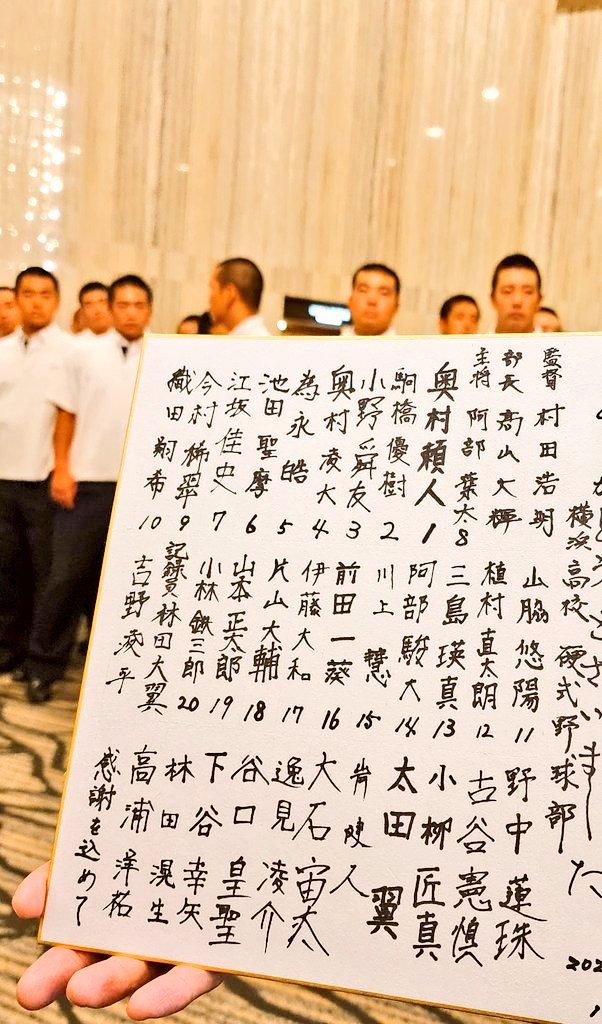 がとうございました
横浜高校 硬式野球部
監督 村田浩明
部長 高山大輝
主将 阿部葉太 8
奥村頼人 1
駒橋優樹 2
小野舜友 3
奥村凌大 4
為永皓 5
池田聖摩 6
江坂佳史 7
今村稀翠 9
織田翔希 10
山脇悠陽 11
植村直太朗 12
三島瑛真 13
阿部駿大 14
川上慧 15
前田一葵 16
伊藤大和 17
片山大輔 18
山本正太郎 19
小林鉄三郎 20
記録員 林田大翼
吉野凌平
野中蓮珠
古谷憲慎
小柳匠真
太田翼
岸健人
大石宙太
逸見凌介
谷口皇聖
下谷幸矢
林田滉生
高浦洋祐
感謝を込めて